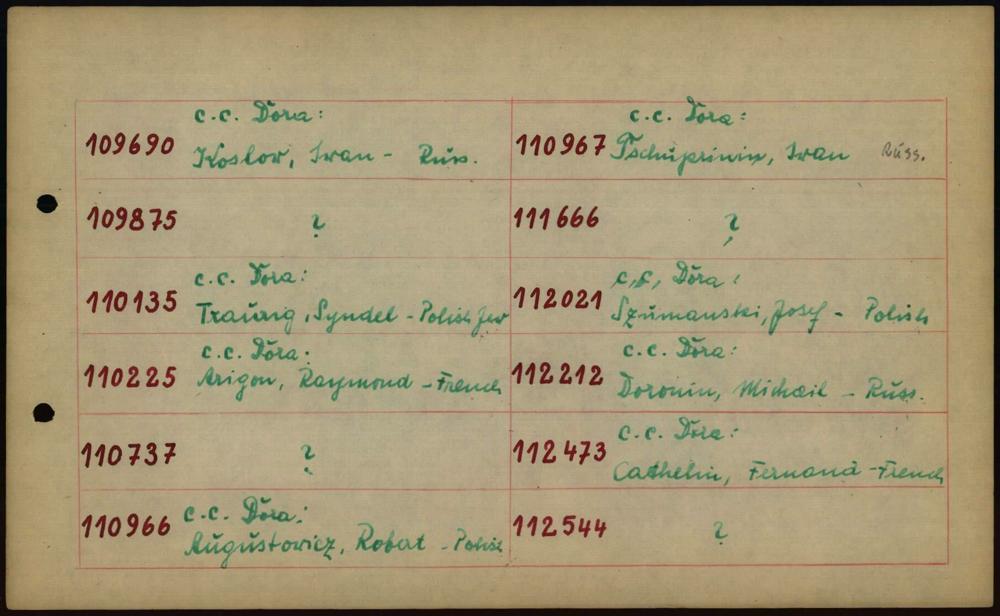 c.c. Dora:
109690 Koslow, Iwan - Russ.
109875 ?
c.c. Dora:
110135 Traurig, Syndel - Polish Jew
c.c. Dora:
110225 Arigon, Raymond - French
110737 ?
c.c. Dora:
110966 Augustowicz, Robert - Polish
c.c. Dora:
110967 Tschuprinin, Iwan Russ.
111666 ?
c.c. Dora:
112021 Szumanski, Josef - Polish
c.c. Dora:
112212 Doronin, Michail - Russ.
c.c. Dora:
112473 Cathelin, Fernand - French
112544 ?